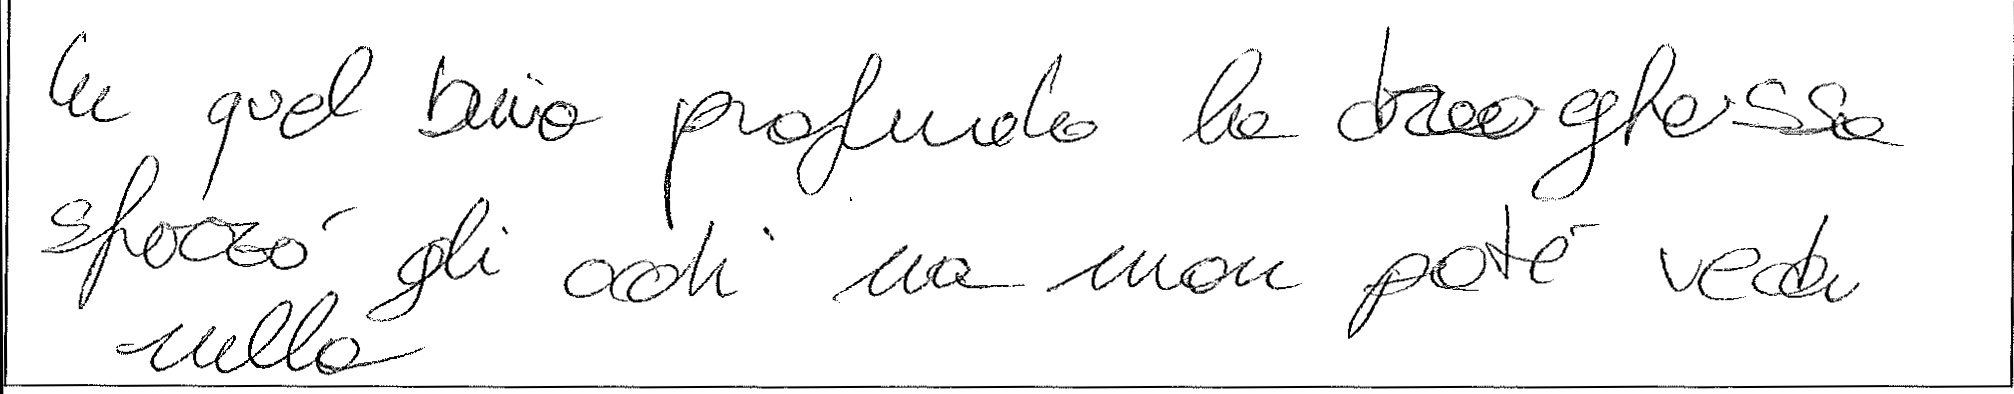 In quel buio profondo la draghessa
sforzó gli occhi ma non poté veder
nulla